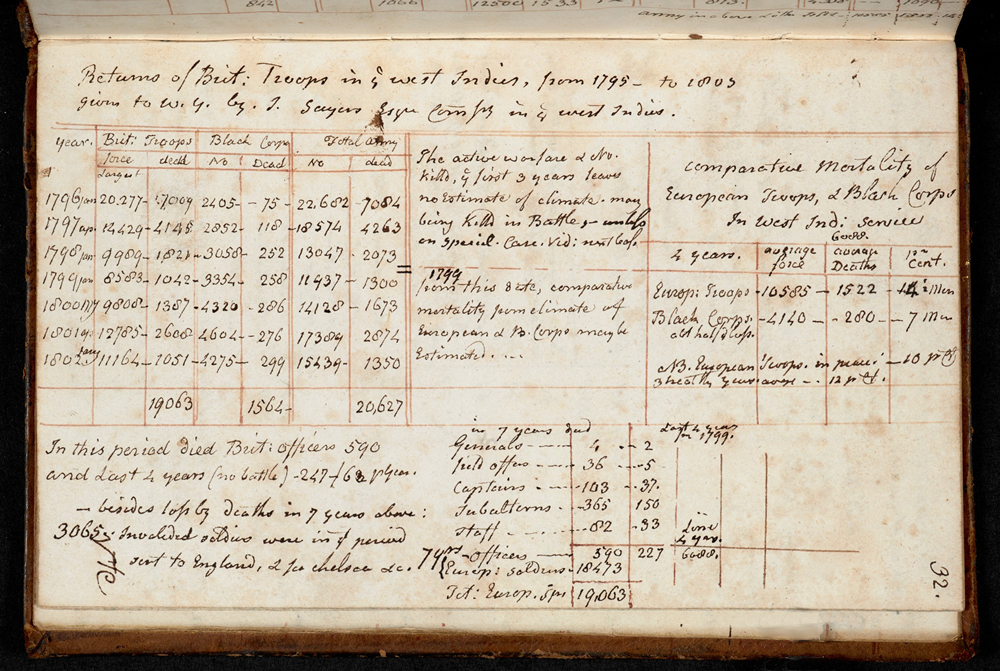 842 1066 12500 1533
army in above
Returns of Brit: Troops in ye west Indies, from 1795 – to 1803
given to W. Y. by J. Sayers Esqr Comsy in ye west Indies.
year. Brit: Troops Black Corps Total Army
force dead No Dead No dead
Largest
1796 jan 20.277 – 7009 2405 – 75 – 22.682 – 7084
1797 ap. 14429 – 4145 2852 – 118 – 18574 4263
1798 jan 9989 – 1821 – 3058 – 252 13047 2073
1799 jan 8583 – 1042 – 3354 – 258 11937 – 1300
1800 9808 – 1387 – 4320 – 286 14128 – 1673
1801 12785 – 2608 4604 – 276 17389 2874
1802 Jany 11164 – 1051 – 4275 – 299 15439 – 1350
19063 1564 – 20,627
The active warfare & No.
killd, ye first 3 years leaves
no Estimate of climate. many
being killd in Battle, – unless
on special. Care. Vid: next
1799
from this date, comparative
mortality from climate of
European & B. Corps may be
Estimated. . . .
comparative Mortality of
European Troops, & Black Corps
In West Indi: Service
6088.
4 years. average force average Deaths pr Cent.
Europ: Troops – 10585 – 1522 – 14: Men
Black Corps. – 4140 – 280 – 7 Men
abt half ye loss.
NB. European Troops. in peace: – 10 pr Ct
3 healthy years avere – . 12 pr Ct.
In this period died Brit: officers 590
and Last 4 years (no battle) – 247 – / 62 pr year.
– besides loss by deaths in 7 years above:
3065: Invalided soldiers were in ye period
sent to England, & for chelsea &c.
in 7 years dead Last 4 years fm 1799.
Generals 4 – 2
field offrs 36 – 5
Captains 103 – 37.
Subalterns 365 150
Staff 82 – 33 Line 4 years.
7 yrs Officers 590 227 6088.
Europ: soldiers – 18473
Tot: Europ. 19,063
32.